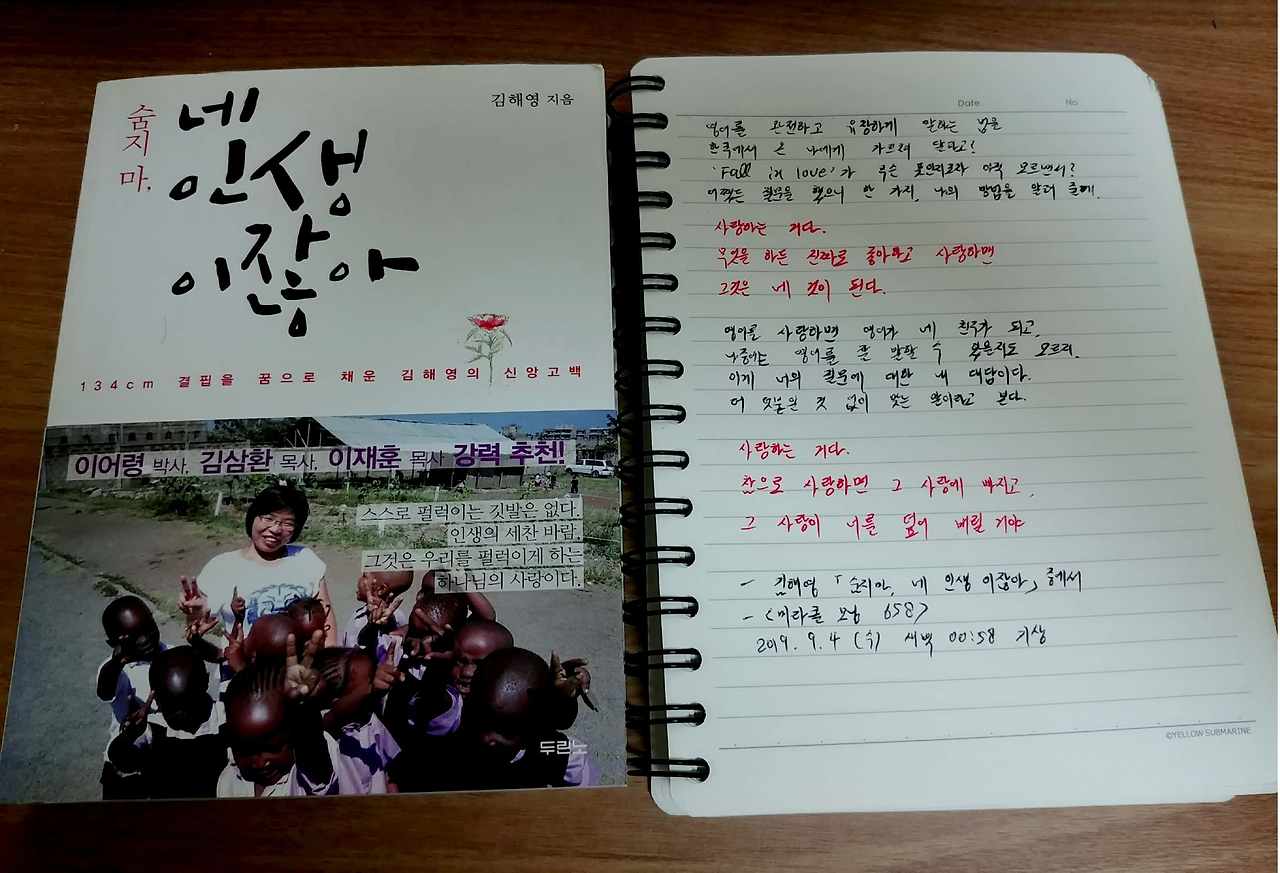 숨지 마,
네
인생
이잖아
김해영 지음
134cm 결핍을 꿈으로 채운 김해영의 신앙고백
이어령 박사, 김삼환 목사, 이재훈 목사 강력 추천!
스스로 펄럭이는 깃발은 없다.
인생의 세찬 바람,
그것은 우리를 펄럭이게 하는
하나님의 사랑이다.
두란노
Date No
영어를 완전하고 유창하게 말하는 법을
한국에서 온 나에게 가르쳐 달라고!
'Fall in love'가 무슨 뜻인지조차 아직 모르면서?
어쨌든 질문을 했으니 한 가지, 나의 방법을 알려 줄께.
사랑하는 거다.
무엇을 하든 진짜로 좋아하고 사랑하면
그것은 네 것이 된다.
영어를 사랑하면 영어가 네 친구가 되고,
나중에는 영어를 잘 말할 수 있을지도 모르지.
이게 너의 질문에 대한 내 대답이다.
더 덧붙일 것 없이 맞는 말이라고 본다.
사랑하는 거다.
참으로 사랑하면 그 사랑에 빠지고,
그 사랑이 너를 덮어 버릴 거야
- 김해영 「숨지마, 네 인생 이잖아」 중에서
- <미라클 모닝 658>
2019. 9. 4 (수) 새벽 00:58 기상
©YELLOW SUBMARINE